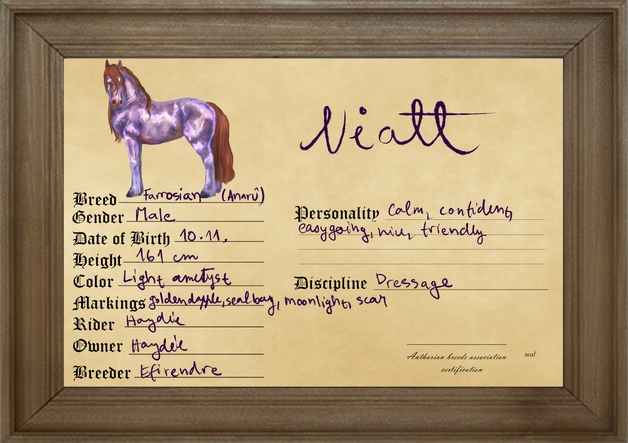 Niatt
Breed Farrosian (Anarû)
Gender Male
Date of Birth 10.11.
Height 161 cm
Color Light ametyst
Markings golden dapple, seal bay, moonlight, scar
Rider Haydée
Owner Haydée
Breeder Efirendre
Personality Calm, confident,
easygoing, nice, friendly
Discipline Dressage
Antharian breeds association
certification
seal